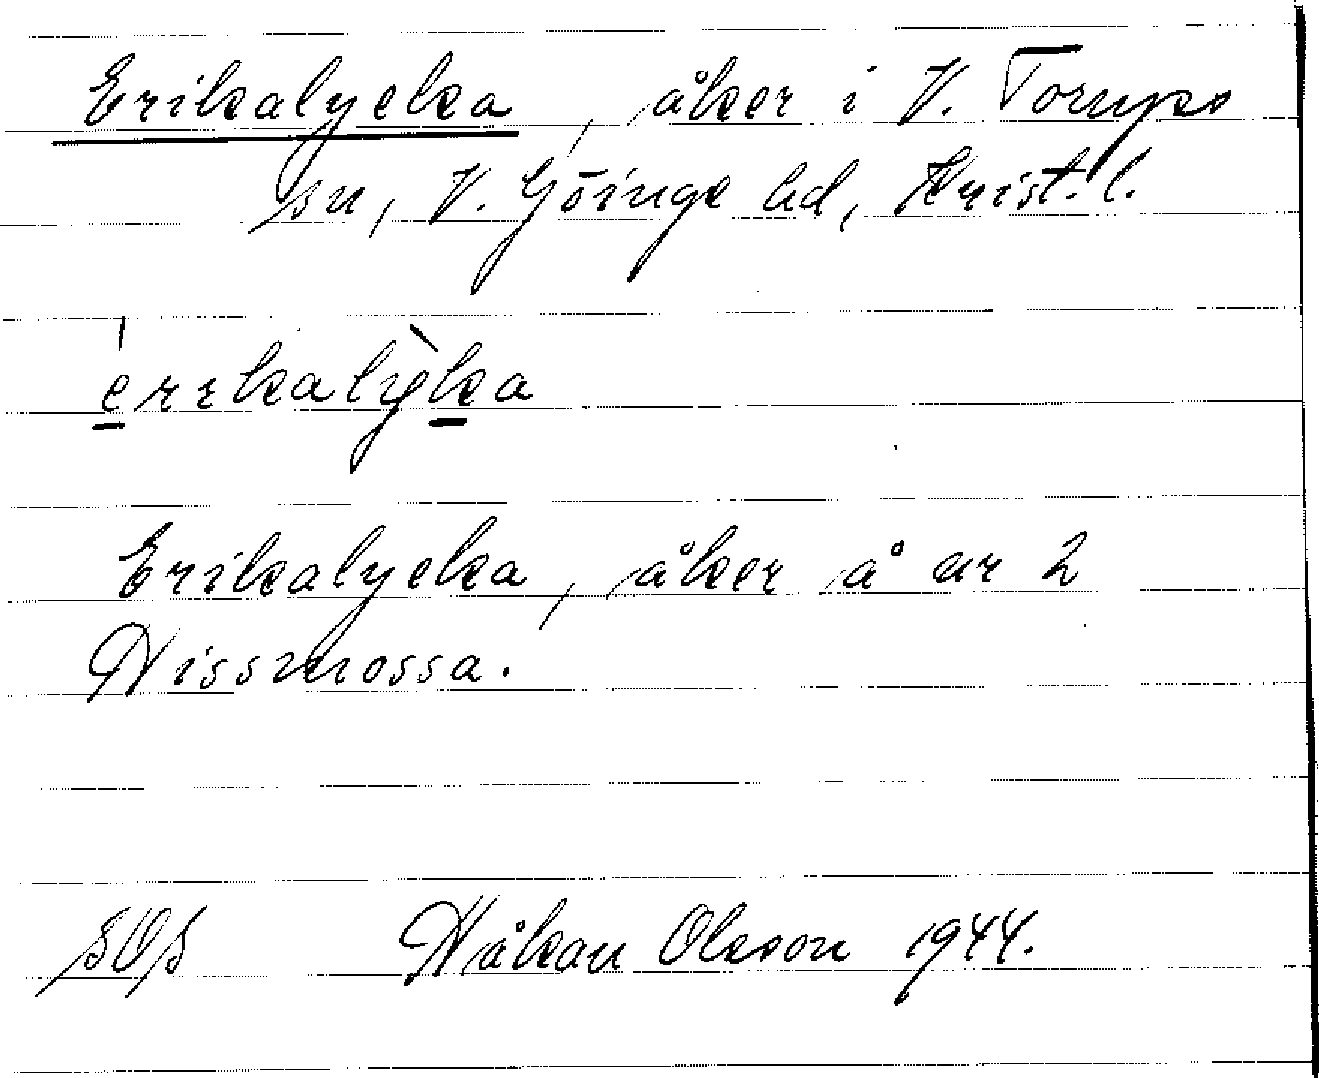 Erikalycka, åker i V. Torups
sn, V. Göinge hd, Krist. l.
errkalyka
Erikalycka, åker å nr 2
Hissmossa.
SOS Håkan Olsson 1944.